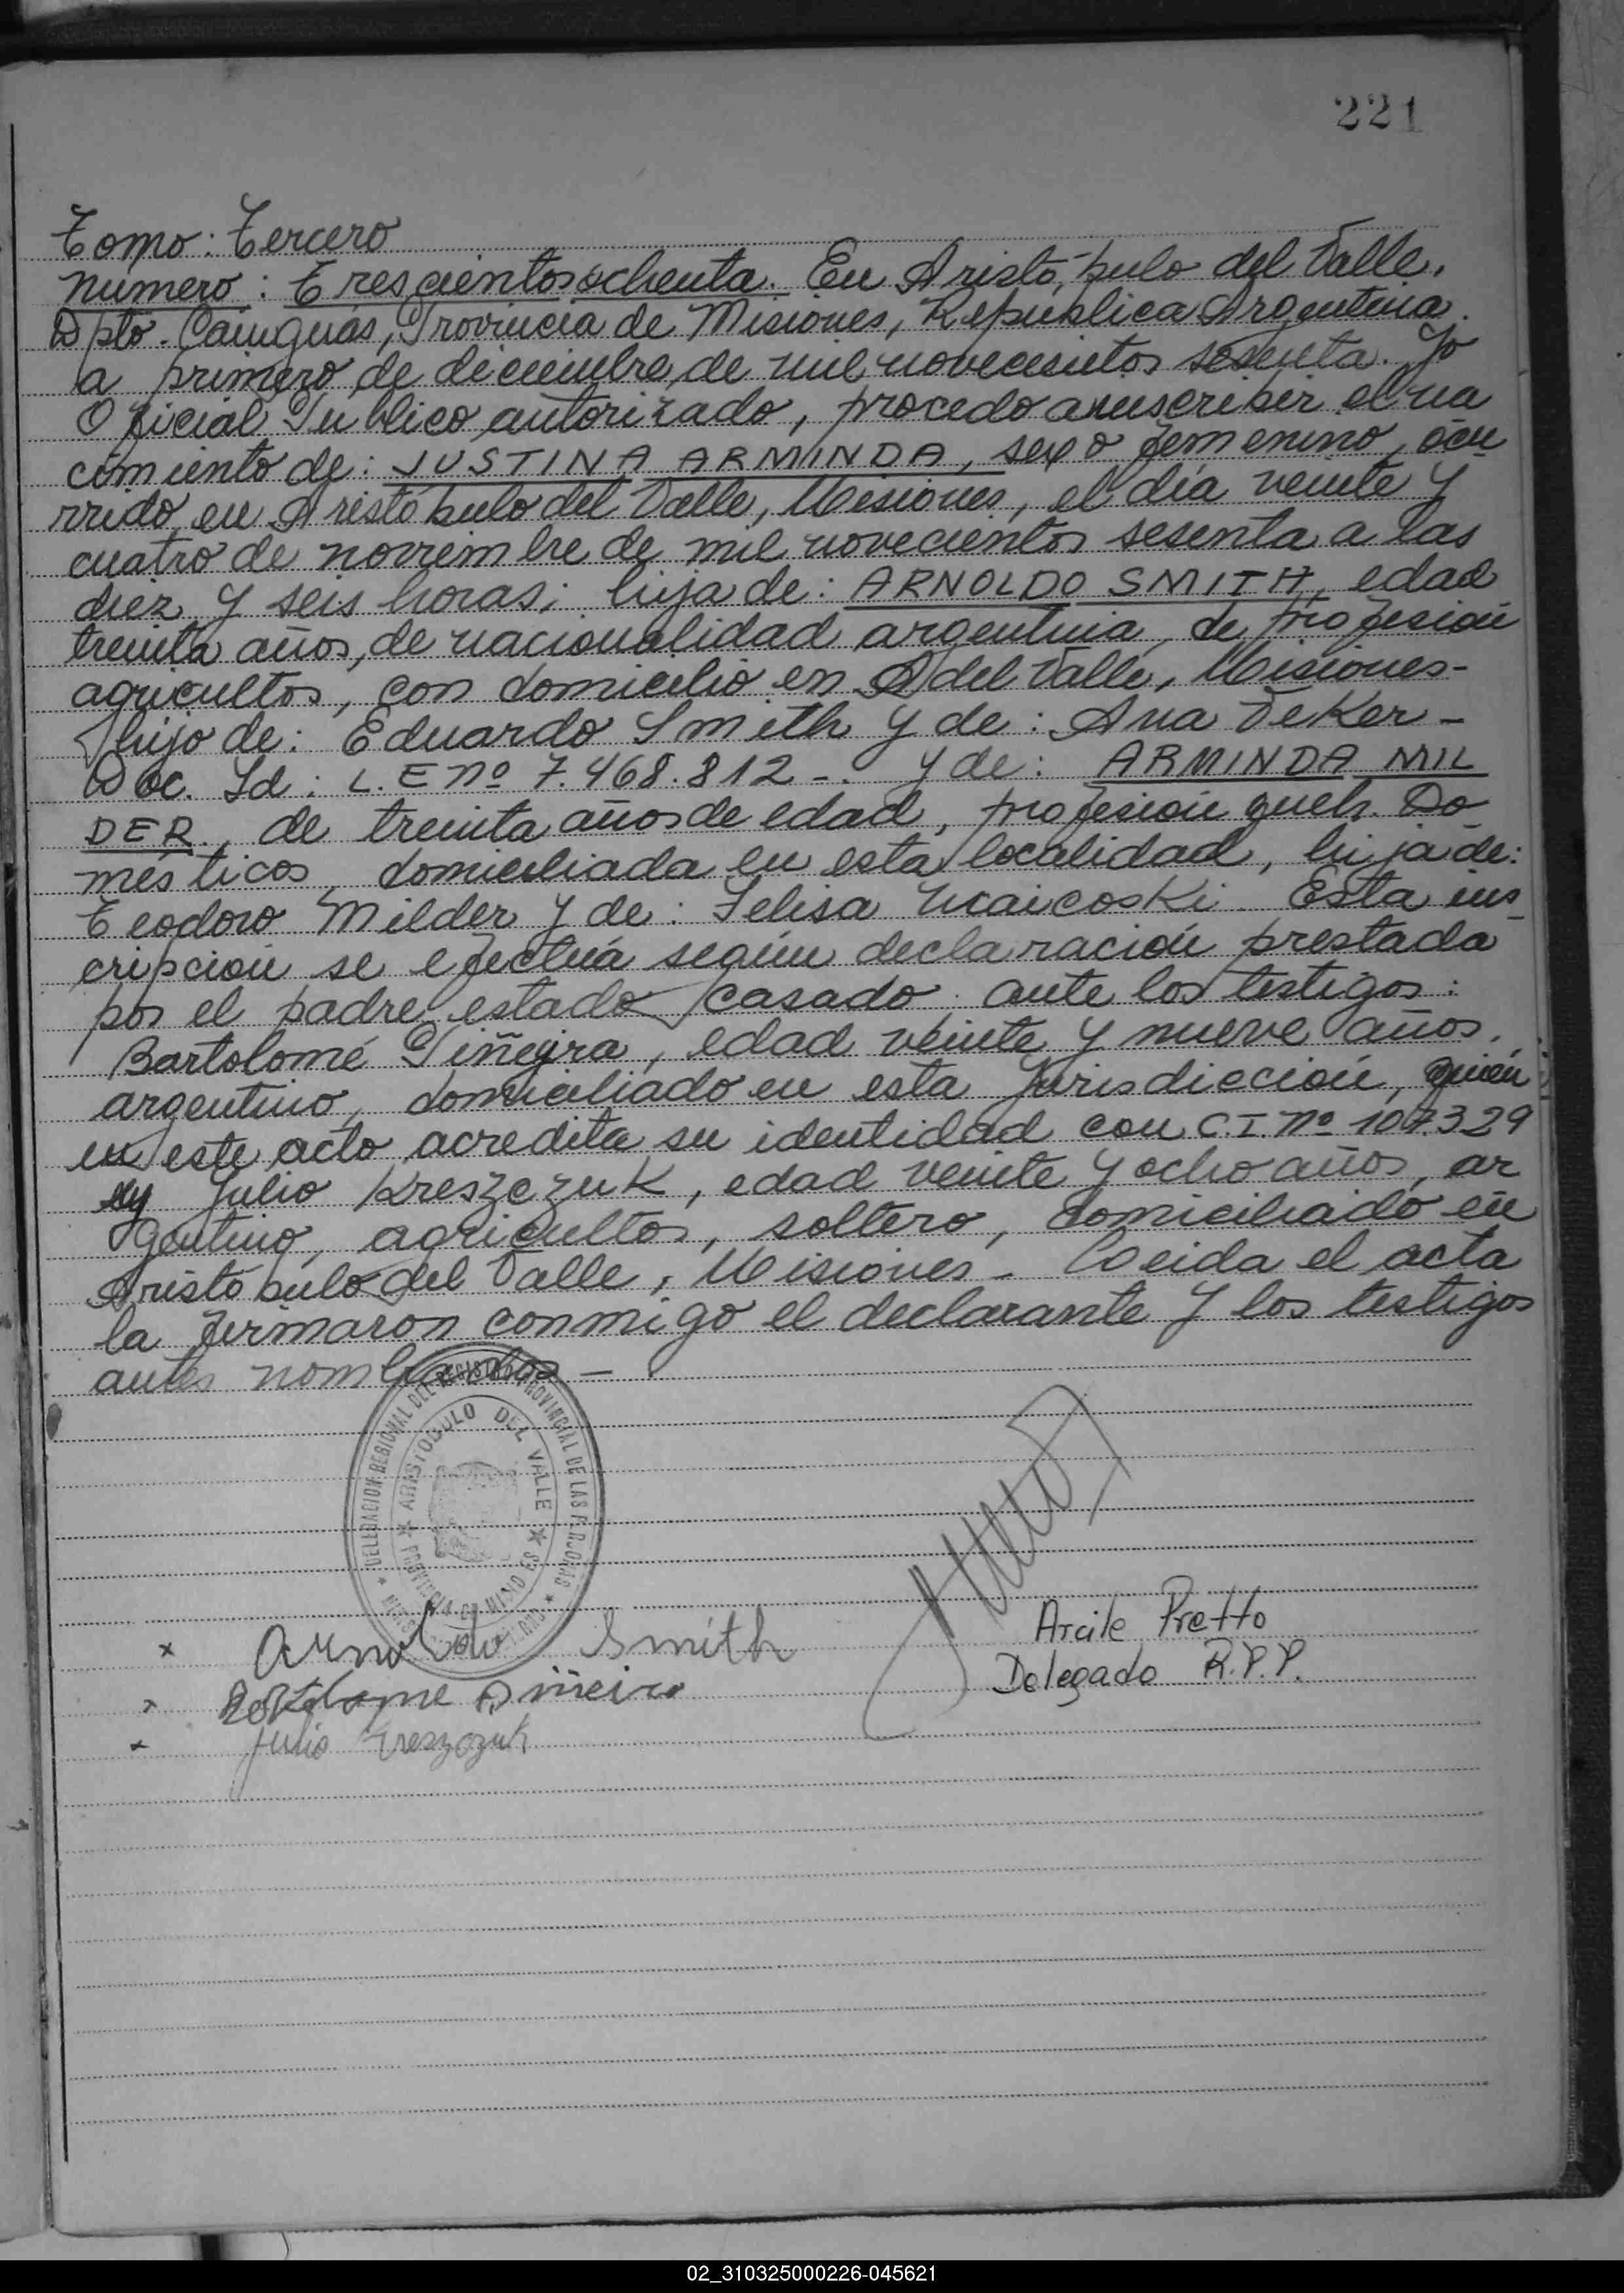 221
Tomo: Tercero
Numero: Trescientos ochenta. En Aristó-bulo del Valle,
Dpto. Cainguás, Provincia de Misiones, República Argentina
a primero de diciembre de mil novecientos sesenta. Yo
Oficial Publico autorizado, procedo a inscribir el na
cimiento de: JUSTINA ARMINDA, sexo femenino, ocu
rrido en Aristóbulo del Valle, Misiones, el día veinte y
cuatro de noviembre de mil novecientos sesenta a las
diez y seis horas; hija de: ARNOLDO SMITH, edad
treinta años, de nacionalidad argentina, de profesión
agricultor, con domicilio en A del Valle, Misiones-
hijo de: Eduardo Smith y de: Ana Teker-
Doc. Id: L.E nº 7.468.812-. y de: ARMINDA MIL
DER, de treinta años de edad, profesión queh. Do-
mésticos, domiciliada en esta localidad, hija de:
Teodoro Milder y de: Felisa Ucaicoski. Esta ins
cripción se efectúa según declaración prestada
por el padre, estado casado. ante los testigos:
Bartolomé Piñeyra, edad veinte y nueve años,
argentino, domiciliado en esta Jurisdicción, quién
en este acto acredita su identidad con C.I. nº 107.329
y Julio Kreszczuk, edad veinte y ocho años, ar
gentino, agricultor, soltero, domiciliado en
Aristóbulo del Valle, Misiones- Leida el acta
la firmaron conmigo el declarante y los testigos
antes nombrados-
DELEGACION REGIONAL DEL REGISTRO PROVINCIAL DE LAS PERSONAS
ARISTOBULO DEL VALLE
PROVINCIA DE MISIONES
Arnoldo Smith
Bartolome Piñeiro
Julio Kreszczuk
Arcile Pretto
Delegado R.P.P.
02_310325000226-045621